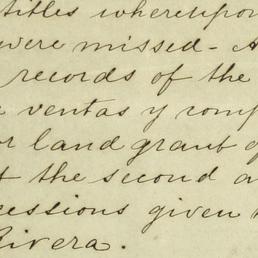 titles whereupon
were missed - A
records of the
ventas y comp
or land grant of
t the second a
cessions given
Rivera.